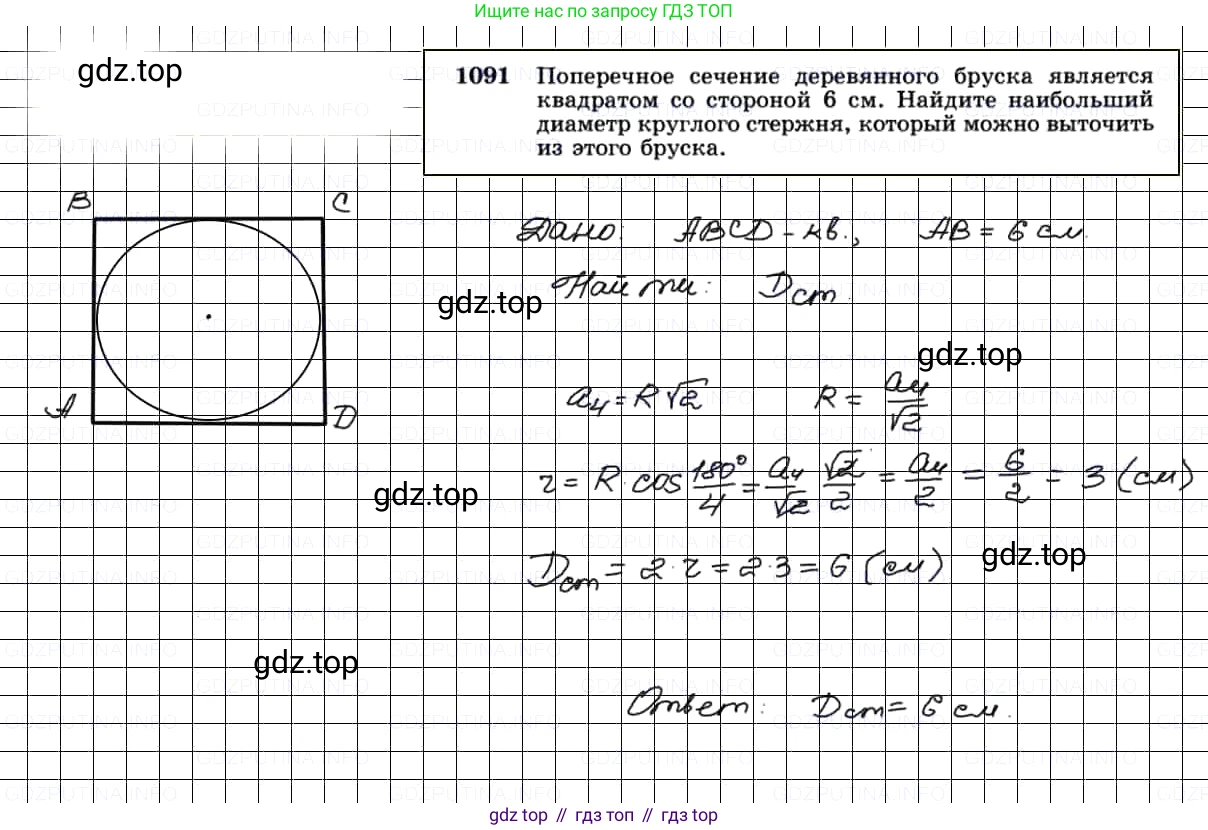 Ищите нас по запросу ГДЗ ТОП
gdz.top
1091 Поперечное сечение деревянного бруска является
квадратом со стороной 6 см. Найдите наибольший
диаметр круглого стержня, который можно выточить
из этого бруска.
B C
A D
Дано: ABCD - кв., AB = 6 см.
Найти: Dст.
gdz.top
gdz.top
a₄ = R√2 R = a₄/√2
r = R · cos 180°/4 = a₄/√2 · √2/2 = a₄/2 = 6/2 = 3 (см)
gdz.top
Dст = 2 · r = 2 · 3 = 6 (см)
gdz.top
gdz.top
Ответ: Dст = 6 см.
gdz.top // гдз топ // гдз top